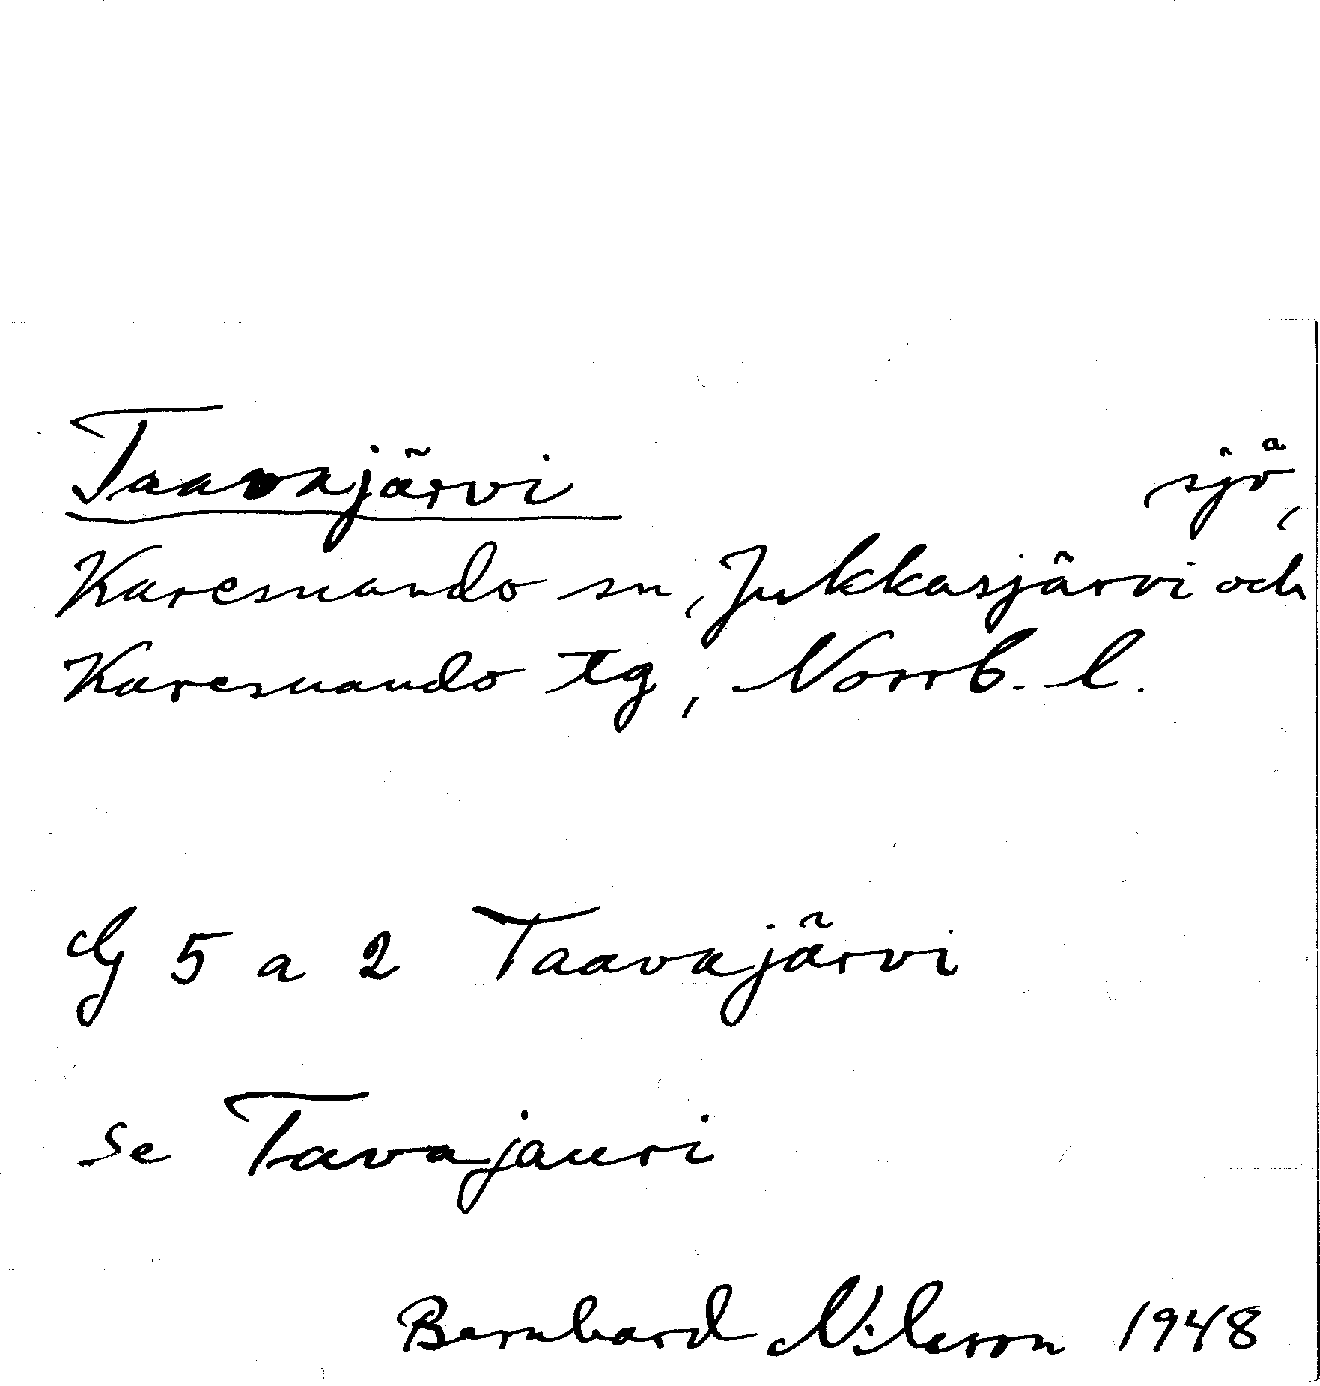 Taavajärvi sjö,
Karesuando sn, Jukkasjärvi och
Karesuando tg, Norrb. l.
G 5 a 2 Taavajärvi
se Tavajauri
Bernhard Nilsson 1948